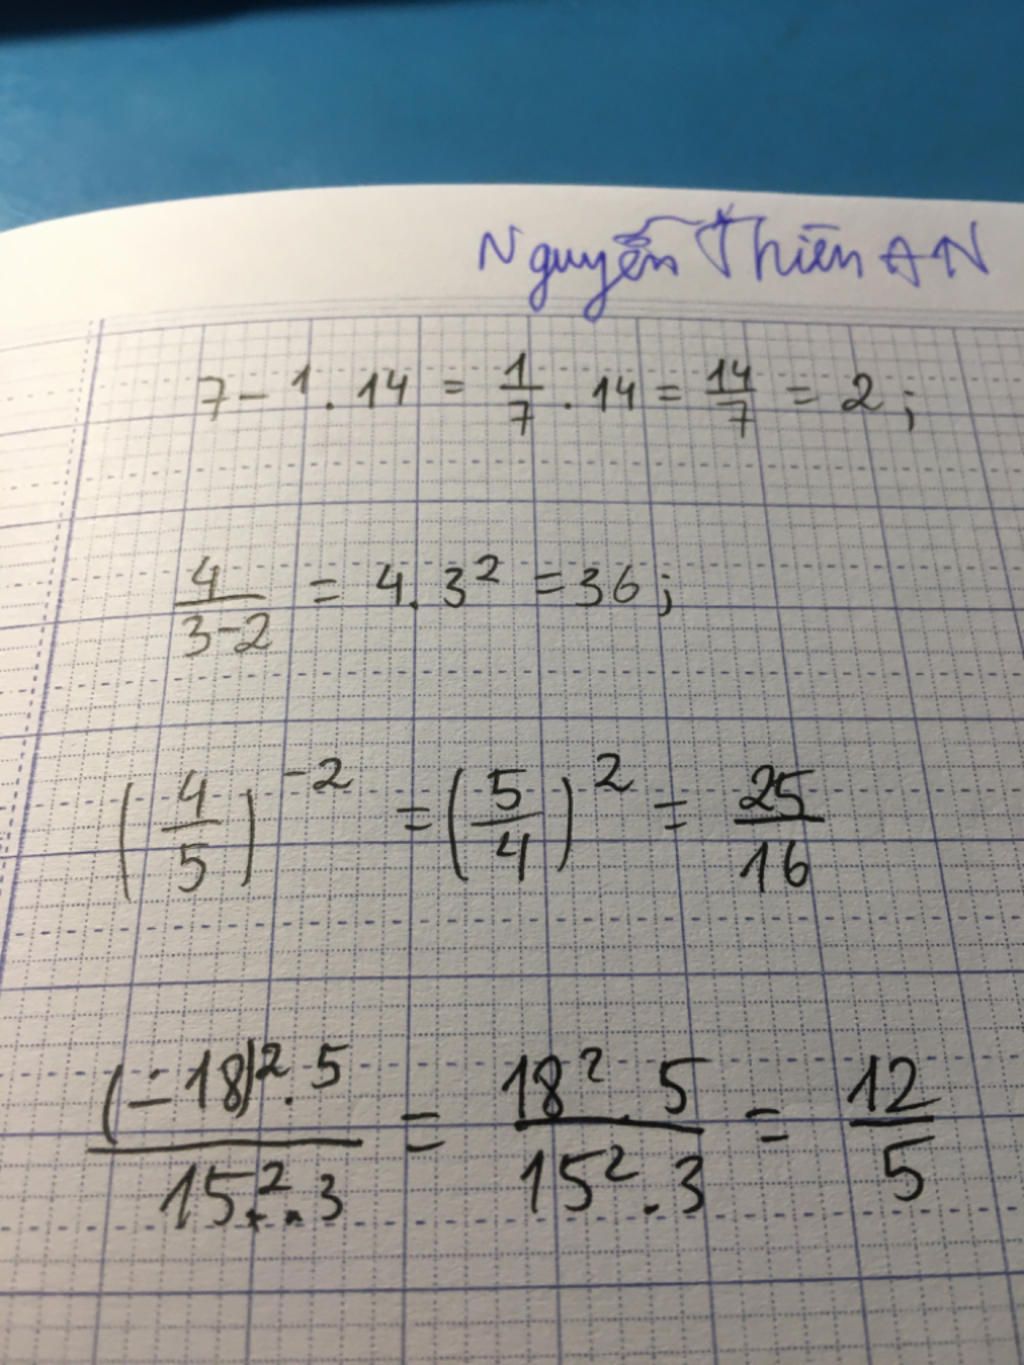 Nguyễn Thiên AN
7⁻¹ . 14 = 1/7 . 14 = 14/7 = 2 ;
4/3⁻² = 4 . 3² = 36 ;
(4/5)⁻² = (5/4)² = 25/16
(-18)² . 5 / 15² . . 3 = 18² . 5 / 15² . 3 = 12/5